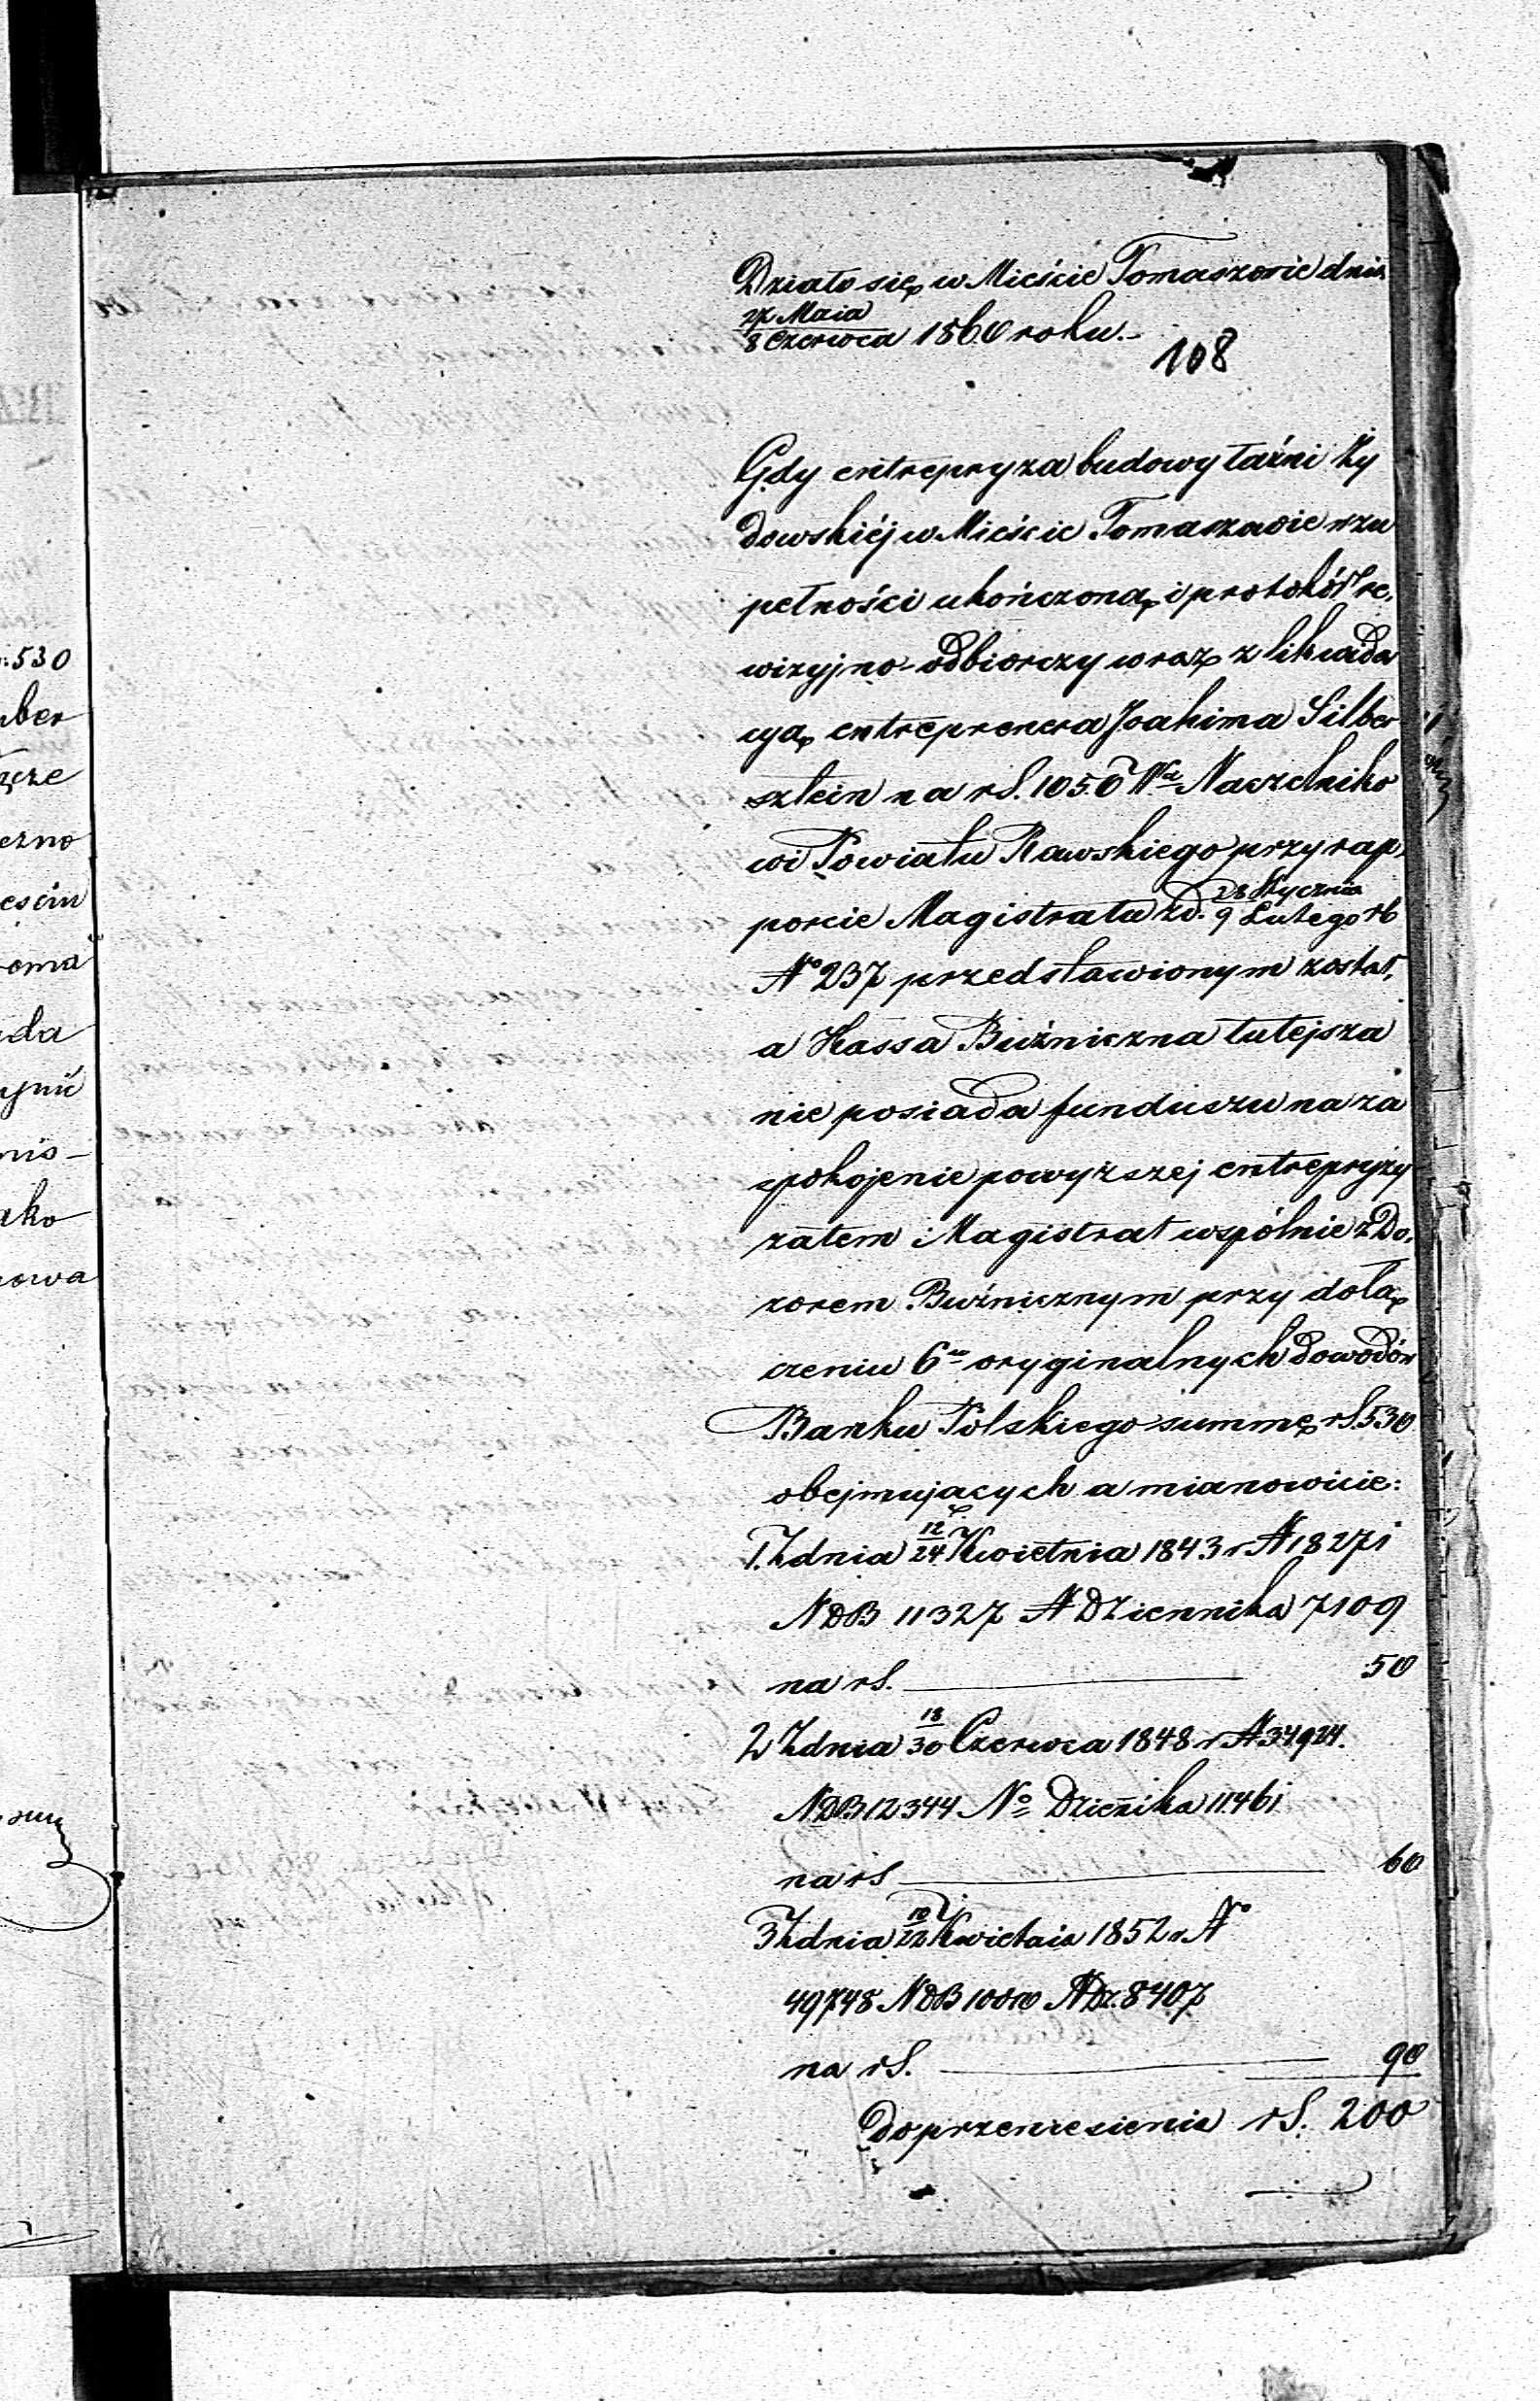 Działo się w Mieście Tomaszowie dnia
27 Maia
8 Czerwca 1860 roku.-
108
Gdy entrepryza budowy łaźni Ży
dowskiéj w Mieście Tomaszowie w zu
pełności ukończoną, i protokół re,
wizyjno-odbiorczy wraz z likwida
cyą entreprenera Joahima Silber
sztein na rS. 1056 Wu Naczelniko
wi Powiatu Rawskiego przy rap,
porcie Magistratu z d. 28 Stycznia
9 Lutego rb
No 237 przedstawionym został,
a Kassa Buźniczna tutejsza
nie posiada funduszu na za
spokojenie powyższej entrepryzy
zatem Magistrat wspólnie z Do,
zorem Buźnicznym przy dołą
czeniu 6u oryginalnych dowodów
Banku Polskiego summę rS. 530
obejmujących a mianowicie:
1. Z dnia 12/24 Kwietnia 1843 r N 18271
NDB 11327 N Dziennika 7109
na rS. 50
2 Z dnia 18/30 Czerwca 1848 r N 34924.
NDB 12344 No Dzieńika 11461
na rS 60
3 Z dnia 10/22 Kwietnia 1852 r. No
49748 NDB 10010 N Dz. 8407
na rS. 90
do przeniesienia rS. 200
:530
uber
ezno
oma
ada
ako
nowa